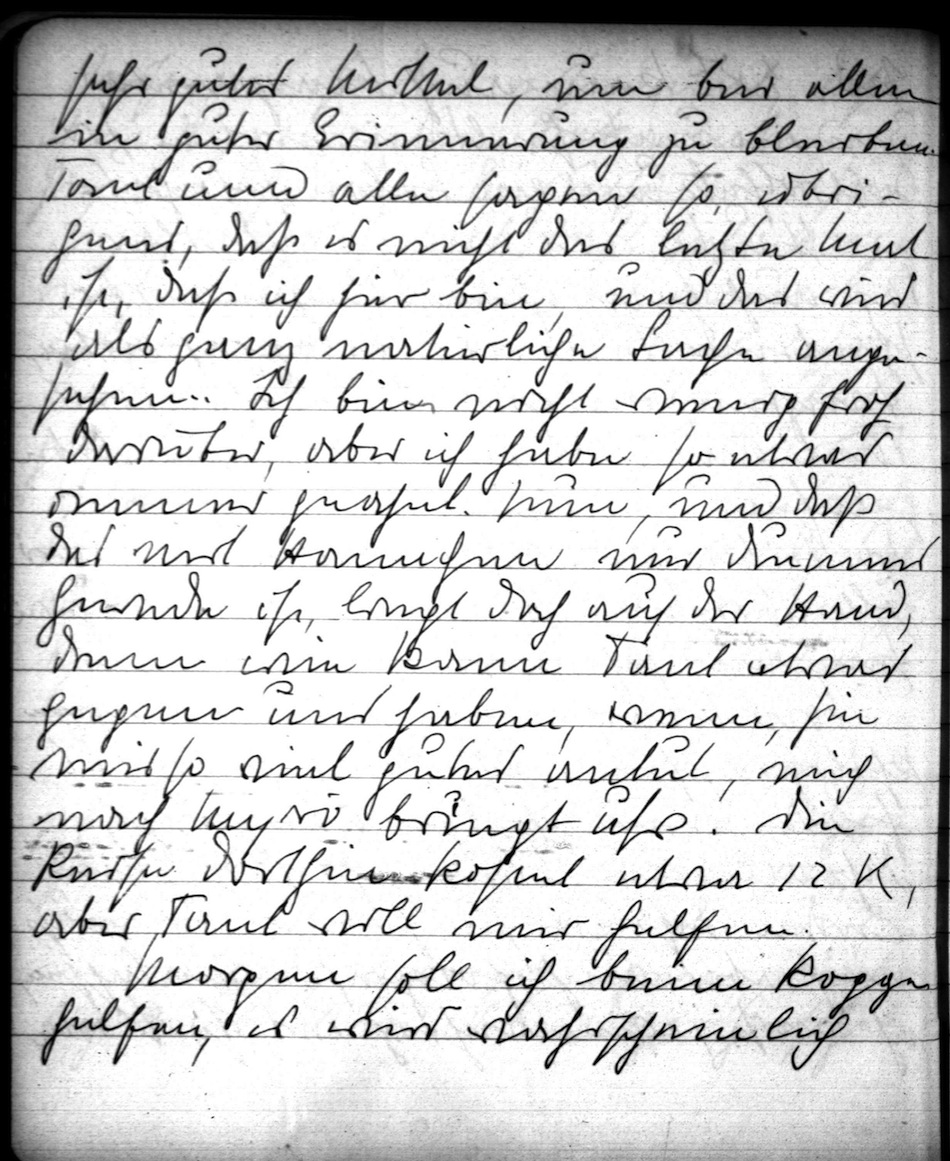 sehr gutes Mittel, um bei allen
in guter Erinnerung zu bleiben.
Tant und alle sagen so, übri-
gens, daß es nicht das letzte Mal
ist, daß ich hier bin, und das wird
als ganz natürliche Sache ange-
sehen.. Ich bin nicht wenig froh
darüber, aber ich habe so etwas
immer geahnt. Nun, und daß
das mit Hannchen nur dummes
Gerede ist, liegt doch auf der Hand,
denn wie kann Tant etwas
gegen uns haben, wenn, sie
mir so viel gutes antut, mich
nach bringt usw. Die
Reise dorthin kostet etwa 12 K,
aber Tant will mir helfen.
Morgen soll ich beim Roggen
helfen, es wird wahrscheinlich